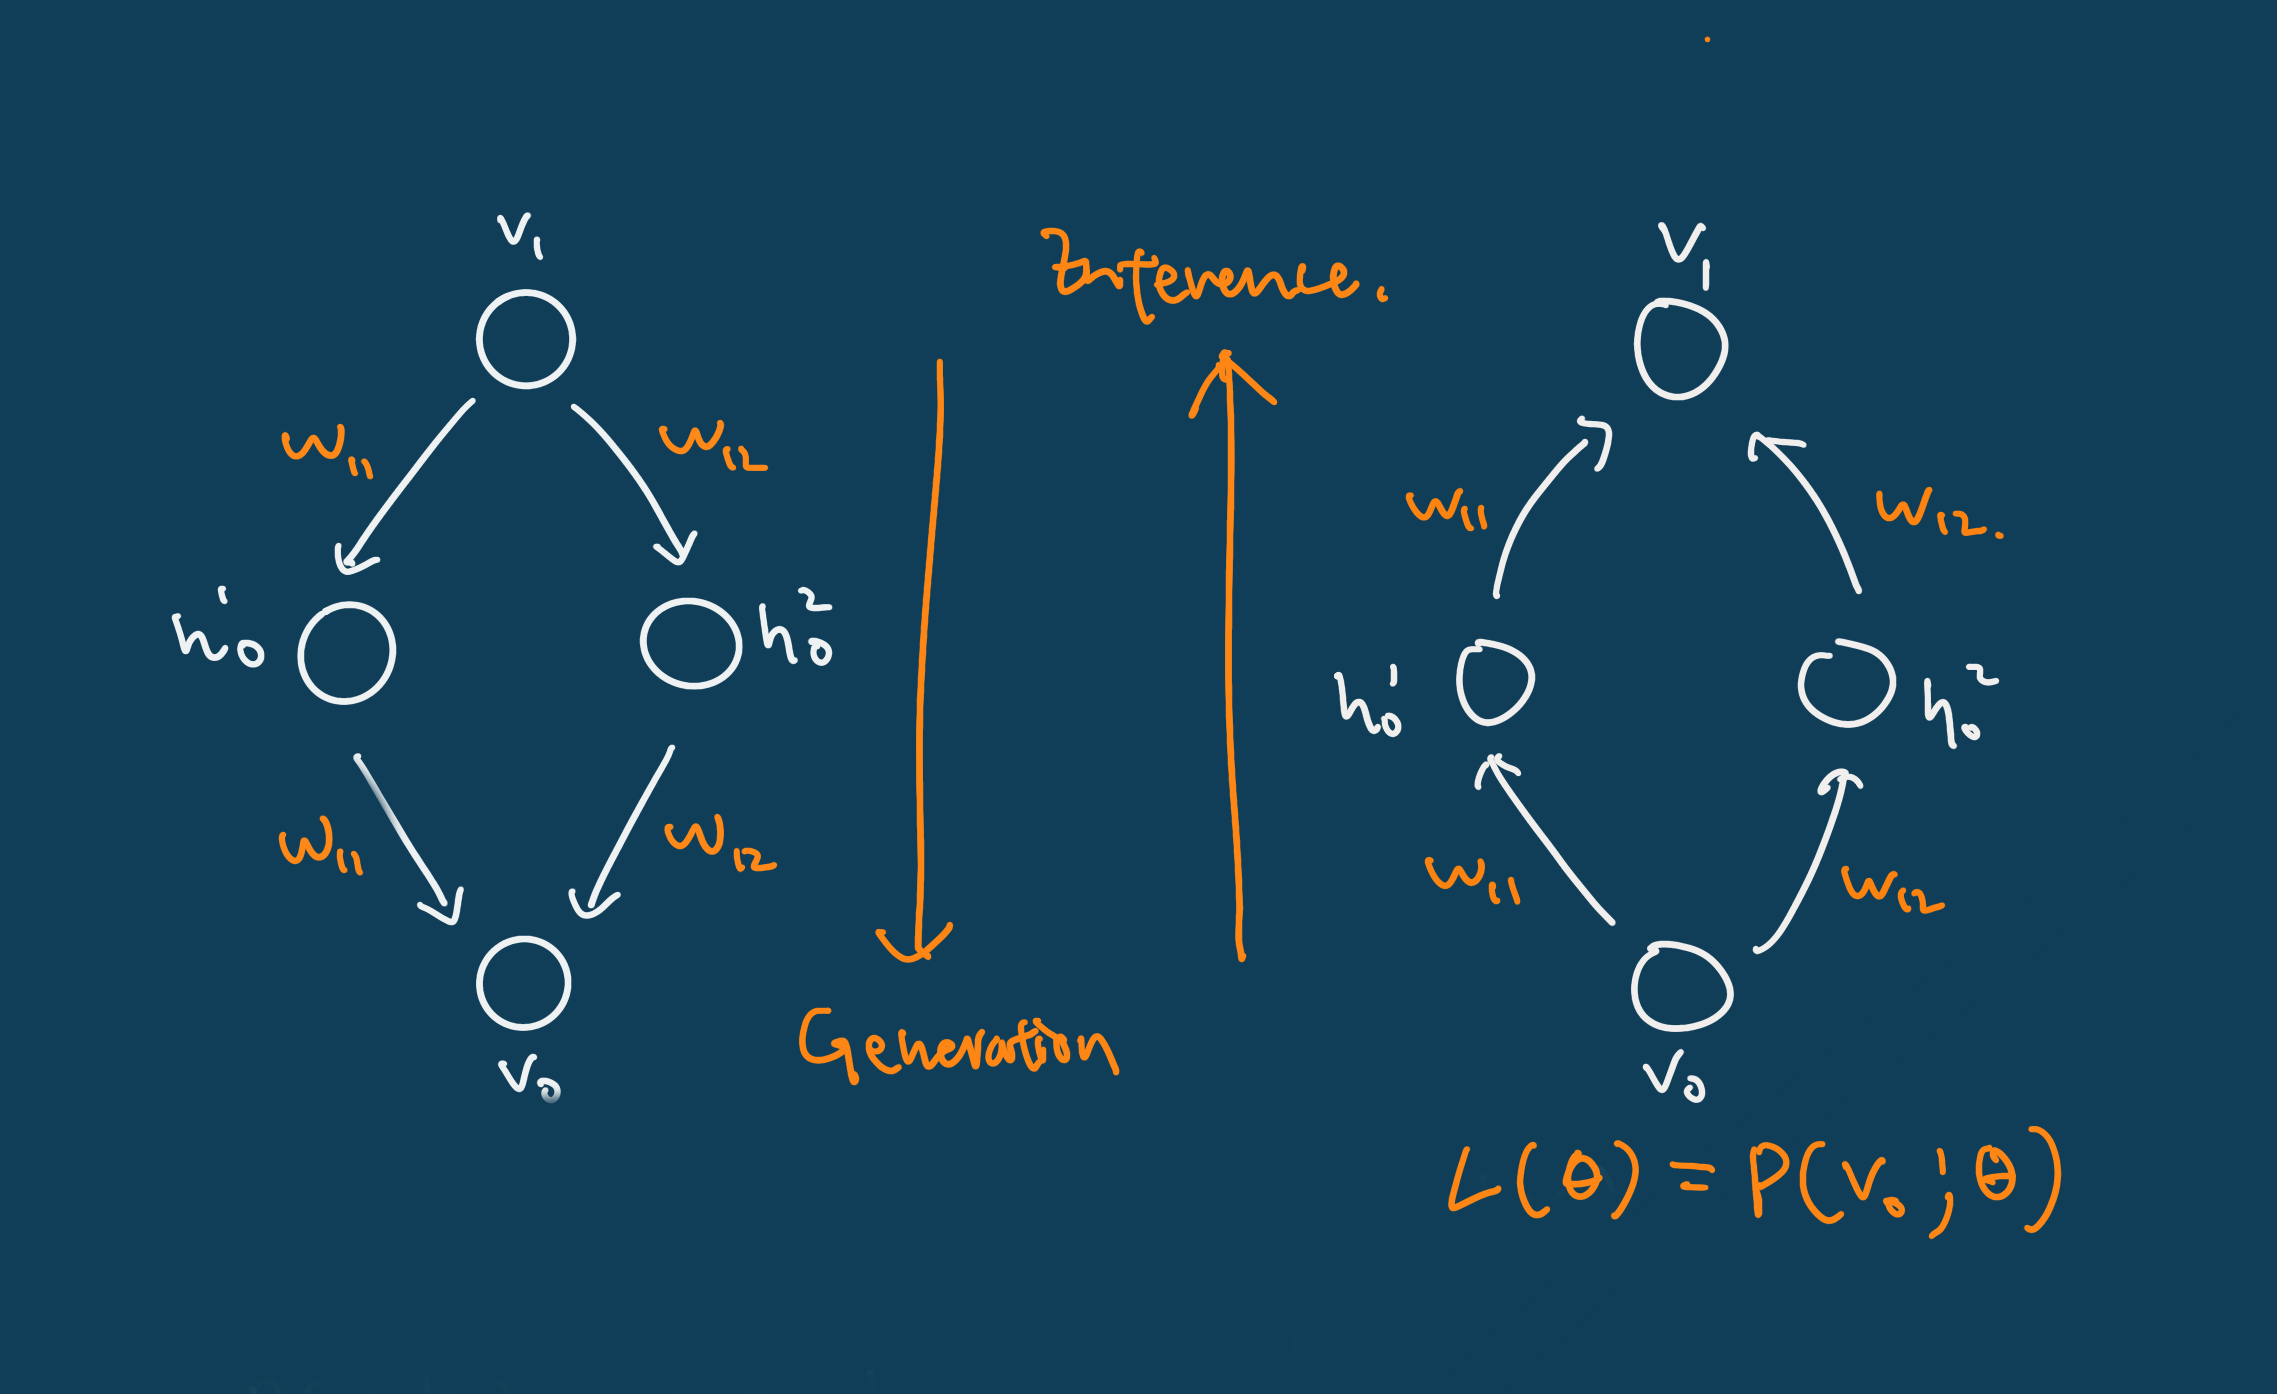 v₁
w₁₁
w₁₂
h₀¹
h₀²
w₁₁
w₁₂
v₀
Inference.
Generation
v₁
w₁₁
w₁₂.
h₀¹
h₀²
w₁₁
w₁₂
v₀
L(θ) = P(v₀;θ)